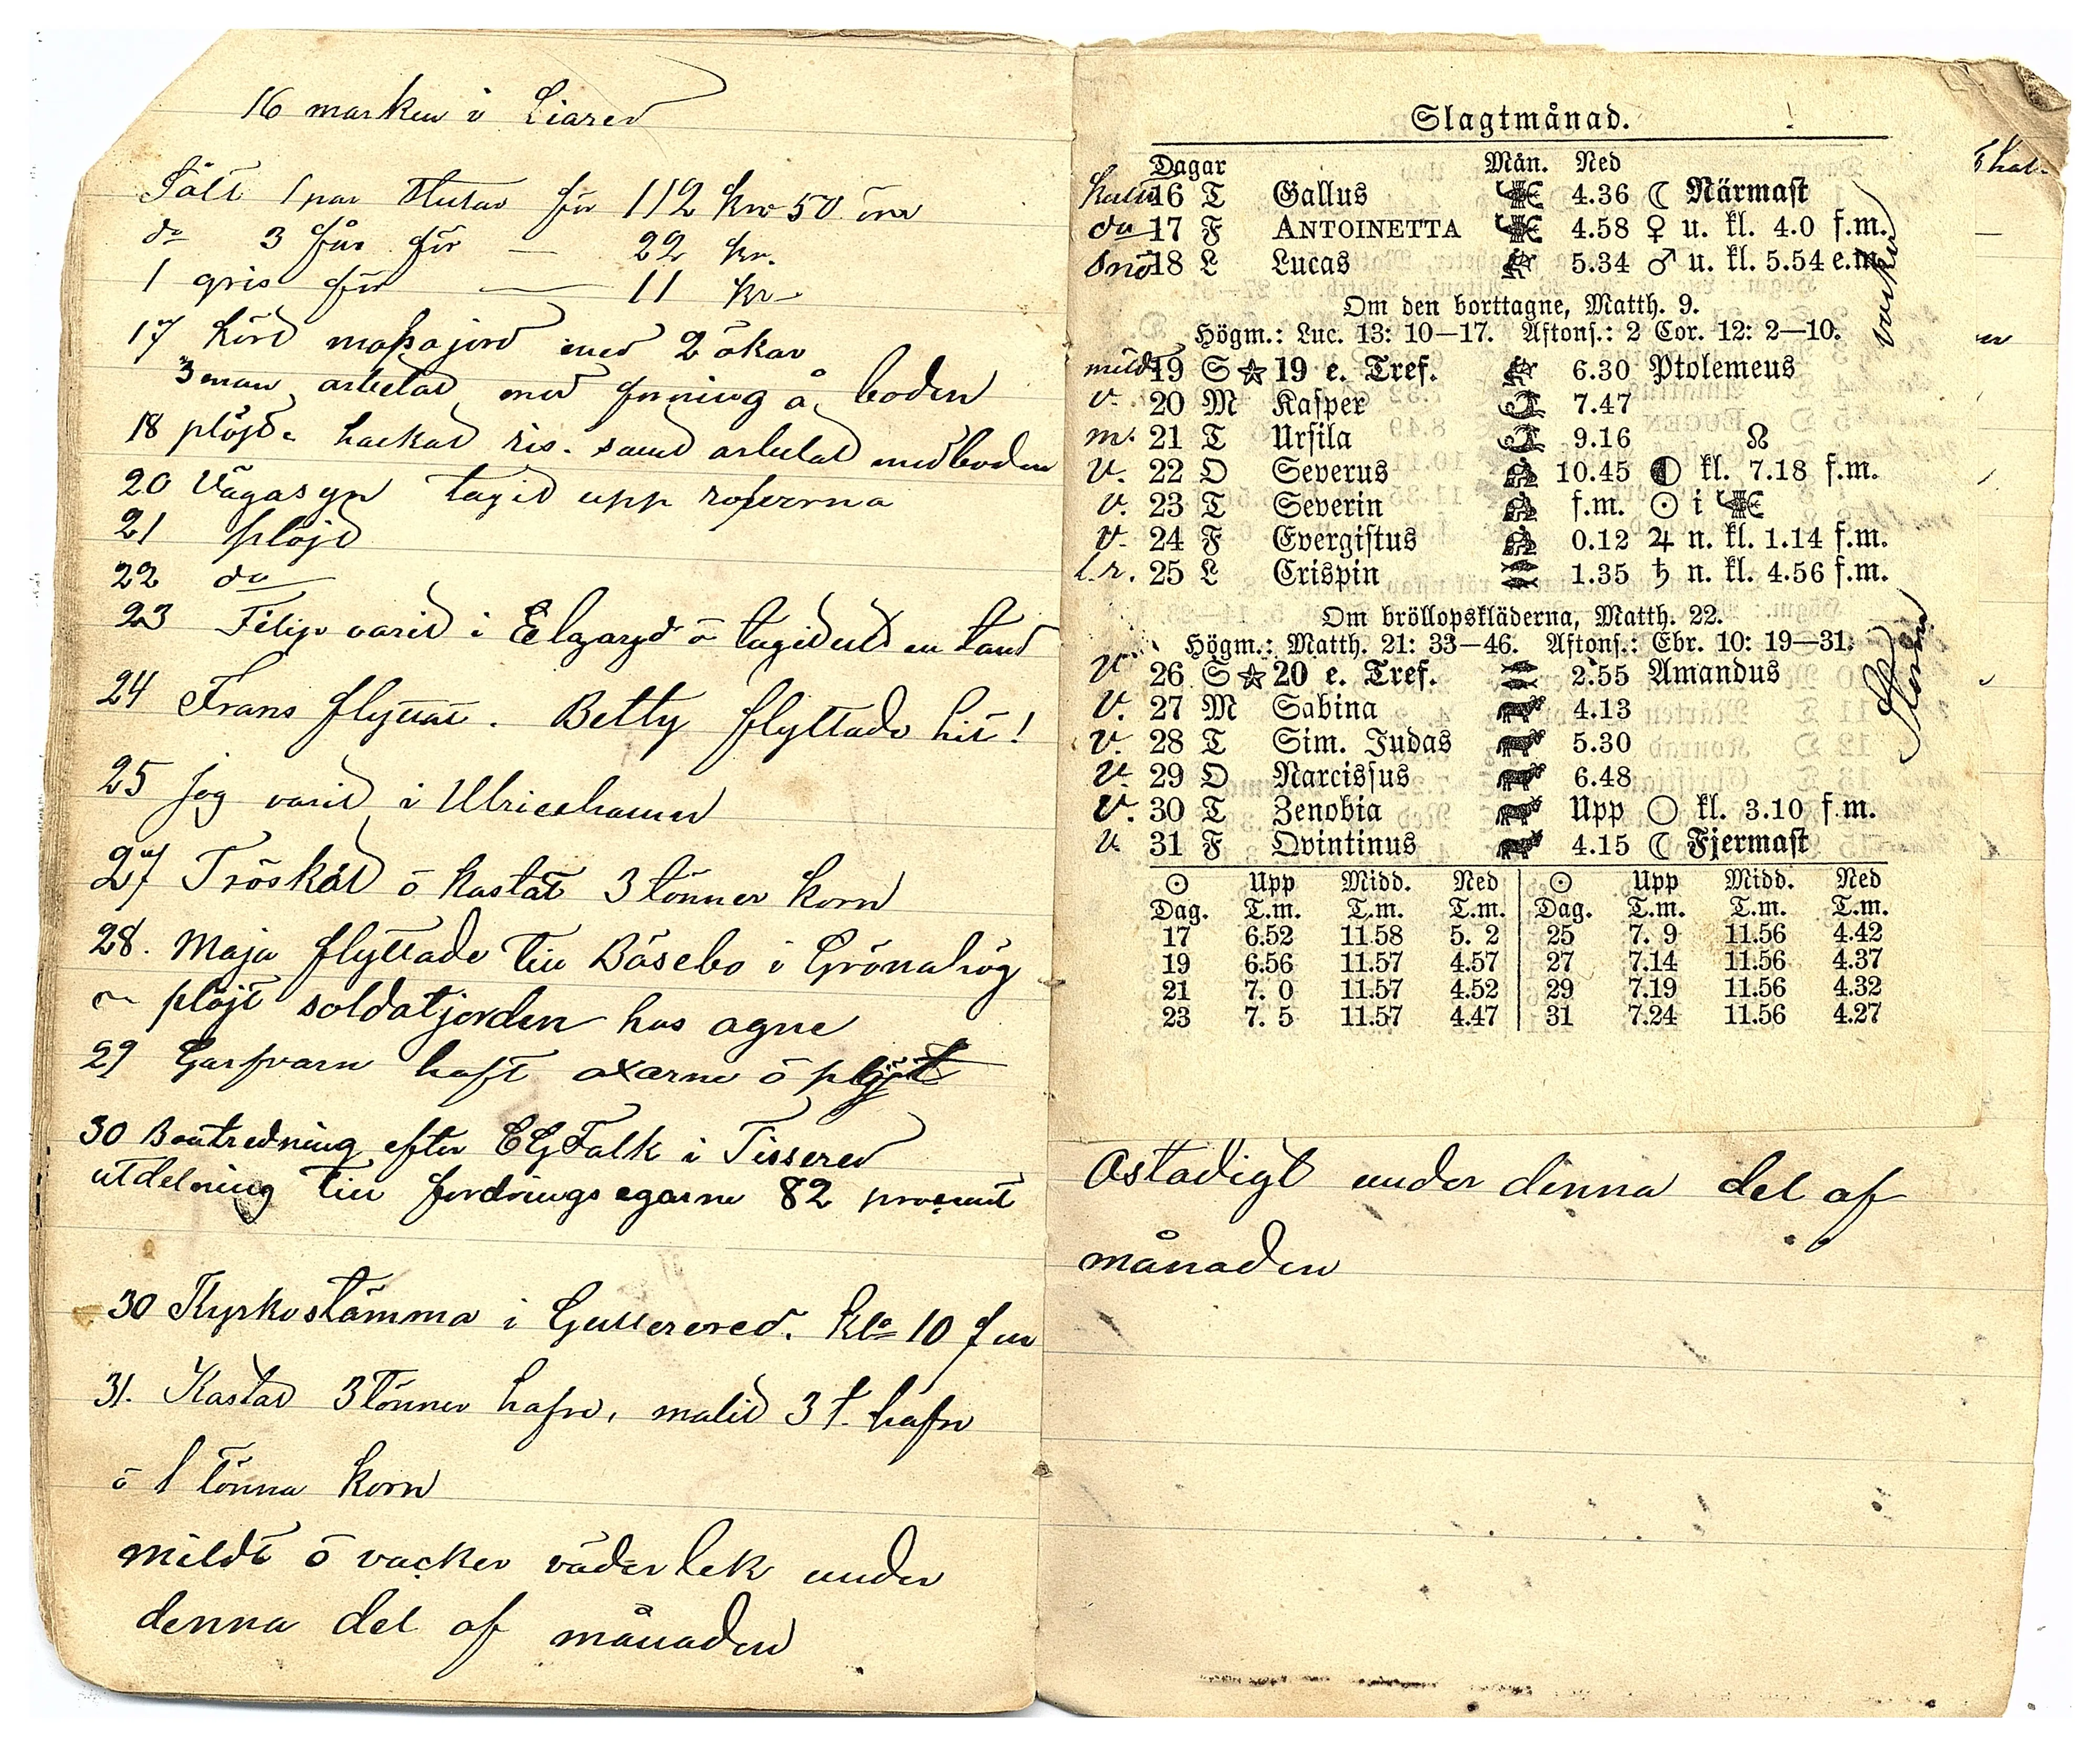 16 marken i Liared
Sålt 1 par stutar för 112 kr 50 öre
do 3 får för — 22 kr.
1 gris för — 11 kr
17 körd mossajord med 2 ökar
3 man arbetad med på boden
18 plöjd hackad ris. samt arbetad med boden
20 Vägasyn tagid upp roferna
21 plöjd
22 do
23 Filip varid i Elgaryd ō tagid ut en tand
24 Frans flyttat. Betty flyttade hit!
25 jag varid i Ulricehamn
27 Tröskad ō kastat 3 tönner korn
28. Maja flyttade till Båsebo i Grönahög
plöjt soldatjorden hos agne
29 Garfvarn haft oxarne ō plöjt
30 Boutredning efter EG Falk i Tissered
utdelning till fordringsegarne 82 procent
30 Kyrkostämma i Gullered. kl. 10 fm
31. Kastad 3 tönner hafre, malid 3 t. hafre
ō 1 tönna korn
mildt ō vacker väderlek under
denna del af månaden
Slagtmånad.
Dagar Mån. Ned
16 T Gallus 4.36 ☾ Närmast
do 17 F ANTOINETTA 4.58 ♀ u. kl. 4.0 f.m.
Snö 18 L Lucas 5.34 ♂ u. kl. 5.54 e.m.
Om den borttagne, Matth. 9.
Högm.: Luc. 13: 10—17. Aftons.: 2 Cor. 12: 2—10.
mild 19 S ☆ 19 e. Tref. 6.30 Ptolemeus
v. 20 M Kasper 7.47
m. 21 T Ursila 9.16 ☊
v. 22 O Severus 10.45 ◐ kl. 7.18 f.m.
v. 23 T Severin f.m. ☉ i ♏
v. 24 F Evergistus 0.12 ♃ n. kl. 1.14 f.m.
l.r. 25 L Crispin 1.35 ♄ n. kl. 4.56 f.m.
Om bröllopskläderna, Matth. 22.
Högm.: Matth. 21: 33—46. Aftons.: Ebr. 10: 19—31.
v 26 S ☆ 20 e. Tref. 2.55 Amandus
v. 27 M Sabina 4.13
v. 28 T Sim. Judas 5.30
v. 29 O Narcissus 6.48
v. 30 T Zenobia Upp ○ kl. 3.10 f.m.
v. 31 F Qvintinus 4.15 ☾ Fjermast
vacker
Storm
☉ Upp Midd. Ned ☉ Upp Midd. Ned
Dag. T.m. T.m. T.m. Dag. T.m. T.m. T.m.
17 6.52 11.58 5. 2 25 7. 9 11.56 4.42
19 6.56 11.57 4.57 27 7.14 11.56 4.37
21 7. 0 11.57 4.52 29 7.19 11.56 4.32
23 7. 5 11.57 4.47 31 7.24 11.56 4.27
Ostadigt under denna del af
månaden